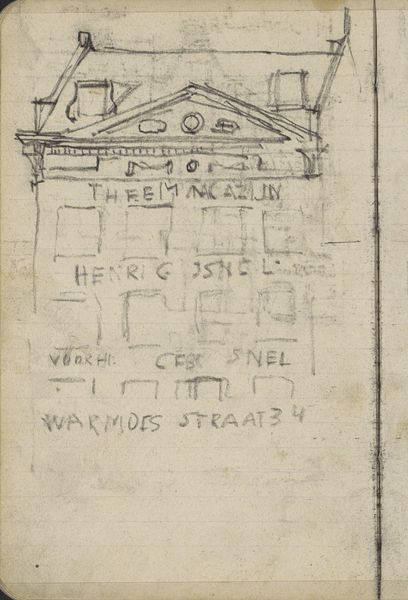 THEEMAGAZIJN
HENRI G SNEL
VOORHI. GEBR SNEL
WARMOES STRAAT 34